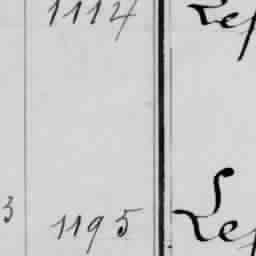 1114 Lef
3 1195 Lef